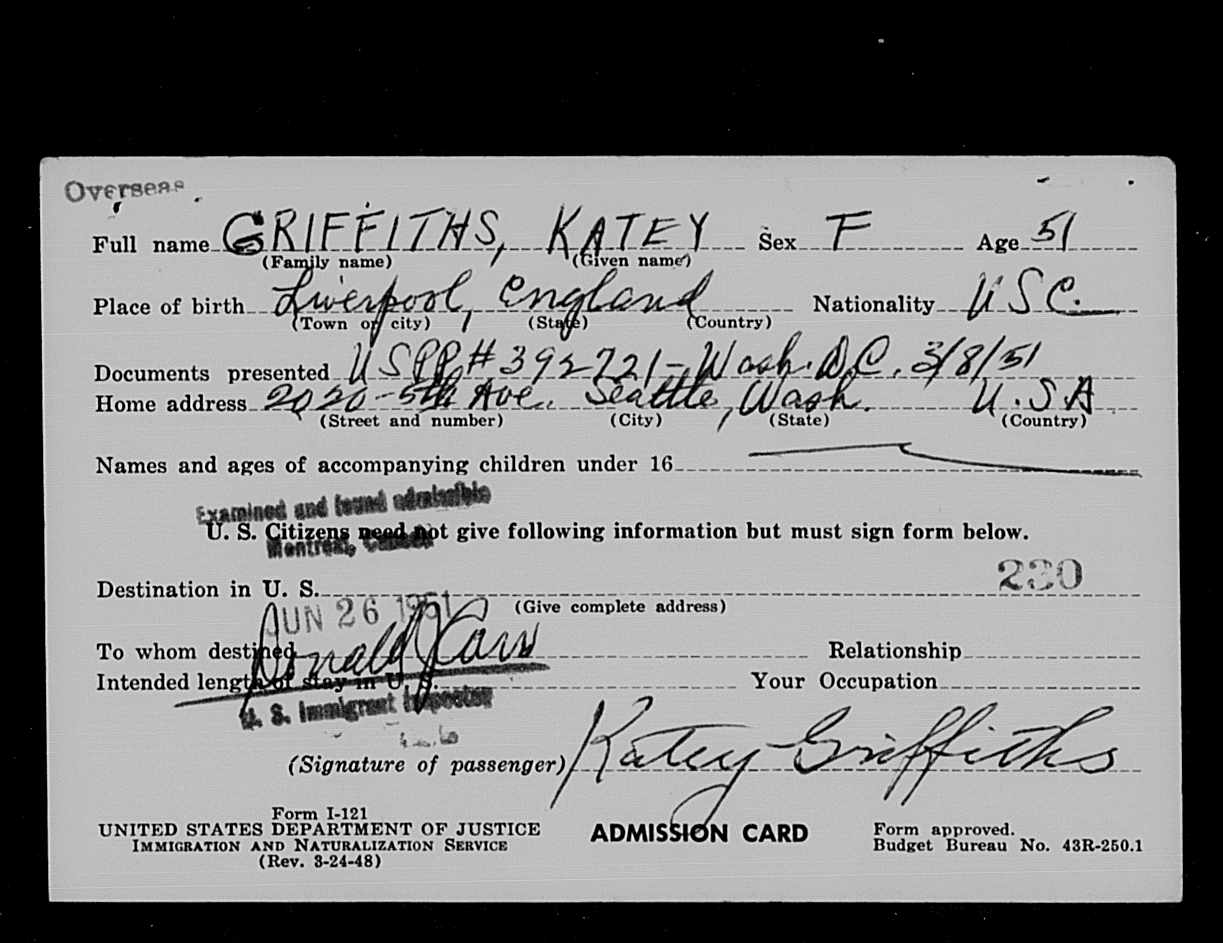 Overseas
Full name GRIFFITHS, KATEY Sex F Age 51
(Family name) (Given name)
Place of birth Liverpool, England Nationality USC.
(Town or city) (State) (Country)
Documents presented USPP# 392721-Wash. D.C. 3/8/51
Home address 2020-5th Ave. Seattle, Wash. U.S.A.
(Street and number) (City) (State) (Country)
Names and ages of accompanying children under 16
Examined and found admissible
U. S. Citizens need not give following information but must sign form below.
Montreal, Canada
230
Destination in U. S.
(Give complete address)
JUN 26 1951
To whom destined Donald J Carr Relationship
Intended length of stay in U. S. Your Occupation
U. S. Immigrant Inspector
(Signature of passenger) Katey Griffiths
Form I-121
UNITED STATES DEPARTMENT OF JUSTICE ADMISSION CARD Form approved.
IMMIGRATION AND NATURALIZATION SERVICE Budget Bureau No. 43R-250.1
(Rev. 3-24-48)